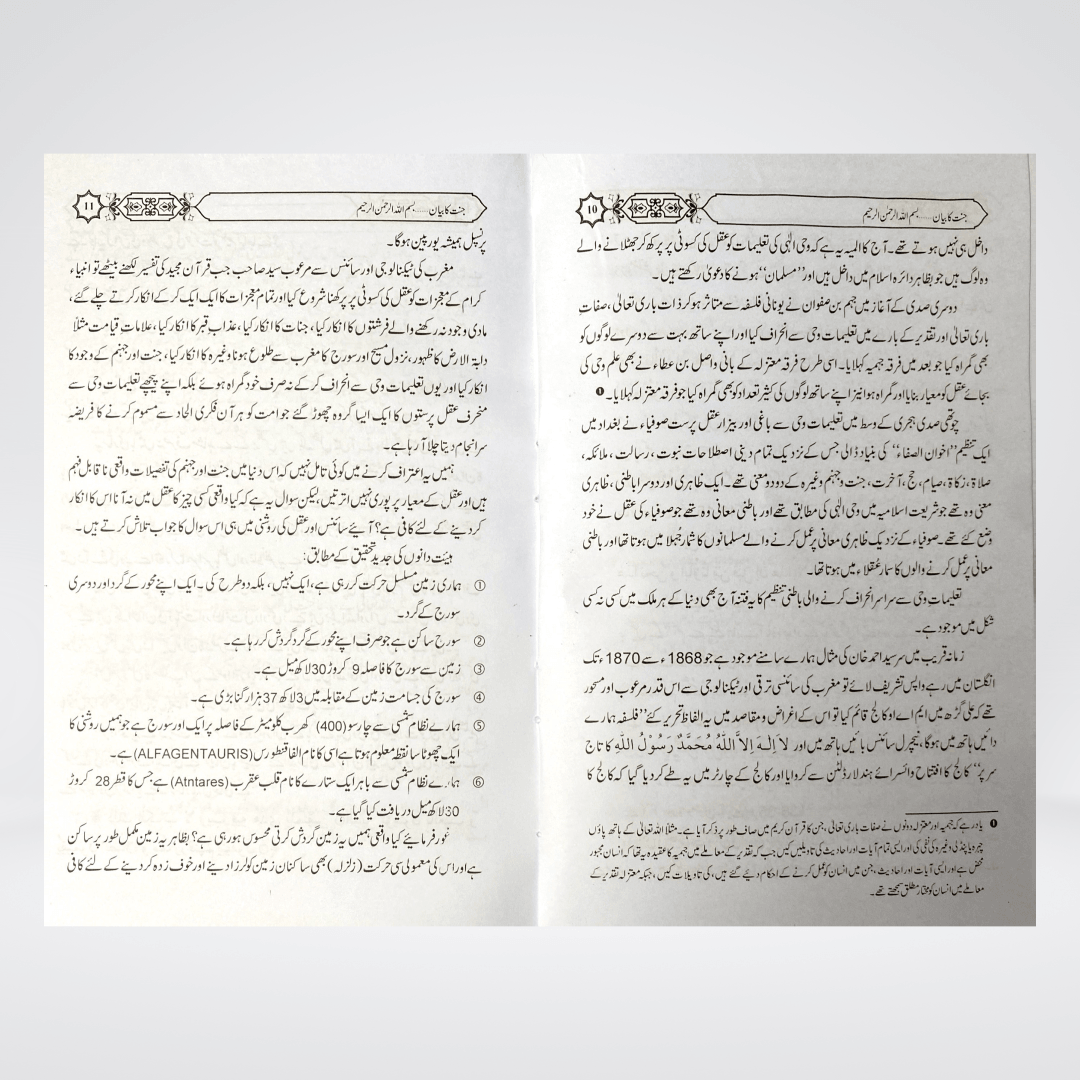 جنت کا بیان ..... بسم اللہ الرحمن الرحیم
10
داخل ہی نہیں ہوتے تھے۔ آج کا المیہ یہ ہے کہ وحی الٰہی کی تعلیمات کو عقل کی کسوٹی پر پرکھ کر جھٹلانے والے
وہ لوگ ہیں جو بظاہر دائرہ اسلام میں داخل ہیں اور ’’مسلمان‘‘ ہونے کا دعویٰ رکھتے ہیں۔
دوسری صدی کے آغاز میں جہم بن صفوان نے یونانی فلسفہ سے متاثر ہو کر ذات باری تعالیٰ، صفاتِ
باری تعالیٰ اور تقدیر کے بارے میں تعلیمات وحی سے انحراف کیا اور اپنے ساتھ بہت سے دوسرے لوگوں کو
بھی گمراہ کیا جو بعد میں فرقہ جہمیہ کہلایا۔ اسی طرح فرقہ معتزلہ کے بانی واصل بن عطاء نے بھی علم وحی کی
بجائے عقل کو معیار بنایا اور گمراہ ہوا نیز اپنے ساتھ لوگوں کی کثیر تعداد کو بھی گمراہ کیا جو فرقہ معتزلہ کہلایا۔ ❶
چوتھی صدی ہجری کے وسط میں تعلیمات وحی سے باغی اور بیزار عقل پرست صوفیاء نے بغداد میں
ایک تنظیم ’’اخوان الصفاء‘‘ کی بنیاد ڈالی جس کے نزدیک تمام دینی اصطلاحات نبوت، رسالت، ملائکہ،
صلاۃ، زکاۃ، صیام، حج، آخرت، جنت و جہنم وغیرہ کے دو دو معنی تھے۔ ایک ظاہری اور دوسرا باطنی، ظاہری
معنی وہ تھے جو شریعت اسلامیہ میں وحی الٰہی کی مطابق تھے اور باطنی معانی وہ تھے جو صوفیاء کی عقل نے خود
وضع کئے تھے۔ صوفیاء کے نزدیک ظاہری معانی پر عمل کرنے والے مسلمانوں کا شمار جہلا میں ہوتا تھا اور باطنی
معانی پر عمل کرنے والوں کا سمار عقلاء میں ہوتا تھا۔
تعلیمات وحی سے سراسر انحراف کرنے والی باطنی تنظیم کا یہ فتنہ آج بھی دنیا کے ہر ملک میں کسی نہ کسی
شکل میں موجود ہے۔
زمانہ قریب میں سر سید احمد خان کی مثال ہمارے سامنے موجود ہے جو 1868ء سے 1870ء تک
انگلستان میں رہے واپس تشریف لائے تو مغرب کی سائنسی ترقی اور ٹیکنالوجی سے اس قدر مرعوب اور مسحور
تھے کہ علی گڑھ میں ایم اے او کالج قائم کیا تو اس کے اغراض و مقاصد میں یہ الفاظ تحریر کئے ’’فلسفہ ہمارے
دائیں ہاتھ میں ہوگا، نیچرل سائنس بائیں ہاتھ میں اور لاَ اِلٰـهَ اِلاَّ اللهُ مُحَمَّدٌ رَسُوْلُ اللهِ کا تاج
سر پر‘‘ کالج کا افتتاح وائسرائے ہند لارڈ لٹن سے کروایا اور کالج کے چارٹر میں یہ طے کر دیا گیا کہ کالج کا
❶ یاد رہے کہ جہمیہ اور معتزلہ دونوں نے صفات باری تعالیٰ، جن کا قرآن کریم میں صاف طور پر ذکر آیا ہے۔ مثلاً اللہ تعالیٰ کے ہاتھ پاؤں
چہرہ یا پنڈلی وغیرہ کی نفی کی اور ایسی تمام آیات اور احادیث کی تاویلیں کیں جب کہ تقدیر کے معاملے میں جہمیہ کا عقیدہ یہ تھا کہ انسان مجبور
محض ہے اور ایسی آیات اور احادیث، جن میں انسان کو عمل کرنے کے احکام دیئے گئے ہیں، کی تاویلات کیں، جبکہ معتزلہ تقدیر کے
معاملے میں انسان کو مختار مطلق سمجھتے تھے۔
جنت کا بیان ..... بسم اللہ الرحمن الرحیم
11
پرنسپل ہمیشہ یورپین ہوگا۔
مغرب کی ٹیکنالوجی اور سائنس سے مرعوب سید صاحب جب قرآن مجید کی تفسیر لکھنے بیٹھے تو انبیاء
کرام کے معجزات کو عقل کی کسوٹی پر پرکھنا شروع کیا اور تمام معجزات کا ایک ایک کر کے انکار کرتے چلے گئے،
مادی وجود نہ رکھنے والے فرشتوں کا انکار کیا، جنات کا انکار کیا، عذاب قبر کا انکار کیا، علامات قیامت مثلاً
دابۃ الارض کا ظہور، نزول مسیح اور سورج کا مغرب سے طلوع ہونا وغیرہ کا انکار کیا، جنت اور جہنم کے وجود کا
انکار کیا اور یوں تعلیمات وحی سے انحراف کر کے نہ صرف خود گمراہ ہوئے بلکہ اپنے پیچھے تعلیمات وحی سے
منحرف عقل پرستوں کا ایک ایسا گروہ چھوڑ گئے جو امت کو ہر آن فکری الحاد سے مسموم کرنے کا فریضہ
سرانجام دیتا چلا آ رہا ہے۔
ہمیں یہ اعتراف کرنے میں کوئی تامل نہیں کہ اس دنیا میں جنت اور جہنم کی تفصیلات واقعی ناقابل فہم
ہیں اور عقل کے معیار پر پوری نہیں اترتیں، لیکن سوال یہ ہے کہ کیا واقعی کسی چیز کا عقل میں نہ آنا اس کا انکار
کر دینے کے لئے کافی ہے؟ آیئے سائنس اور عقل کی روشنی میں ہی اس سوال کا جواب تلاش کرتے ہیں۔
ہیئت دانوں کی جدید تحقیق کے مطابق:
① ہماری زمین مسلسل حرکت کر رہی ہے، ایک نہیں، بلکہ دو طرح کی۔ ایک اپنے محور کے گرد اور دوسری
سورج کے گرد۔
② سورج ساکن ہے جو صرف اپنے محور کے گرد گردش کر رہا ہے۔
③ زمین سے سورج کا فاصلہ 9 کروڑ 30 لاکھ میل ہے۔
④ سورج کی جسامت زمین کے مقابلہ میں 3 لاکھ 37 ہزار گنا بڑی ہے۔
⑤ ہمارے نظام شمسی سے چار سو (400) کھرب کلومیٹر کے فاصلہ پر ایک اور سورج ہے جو ہمیں روشنی کا
ایک چھوٹا سا نقطہ معلوم ہوتا ہے اسی کا نام الفاقنطورس (ALFAGENTAURIS) ہے۔
⑥ ہمارے نظام شمسی سے باہر ایک ستارے کا نام قلب عقرب (Atntares) ہے جس کا قطر 28 کروڑ
30 لاکھ میل دریافت کیا گیا ہے۔
غور فرمائیے کیا واقعی ہمیں یہ زمین گردش کرتی محسوس ہو رہی ہے؟ بظاہر یہ زمین مکمل طور پر ساکن
ہے اور اس کی معمولی سی حرکت (زلزلہ) بھی ساکنان زمین کو لرزا دینے اور خوف زدہ کر دینے کے لئے کافی